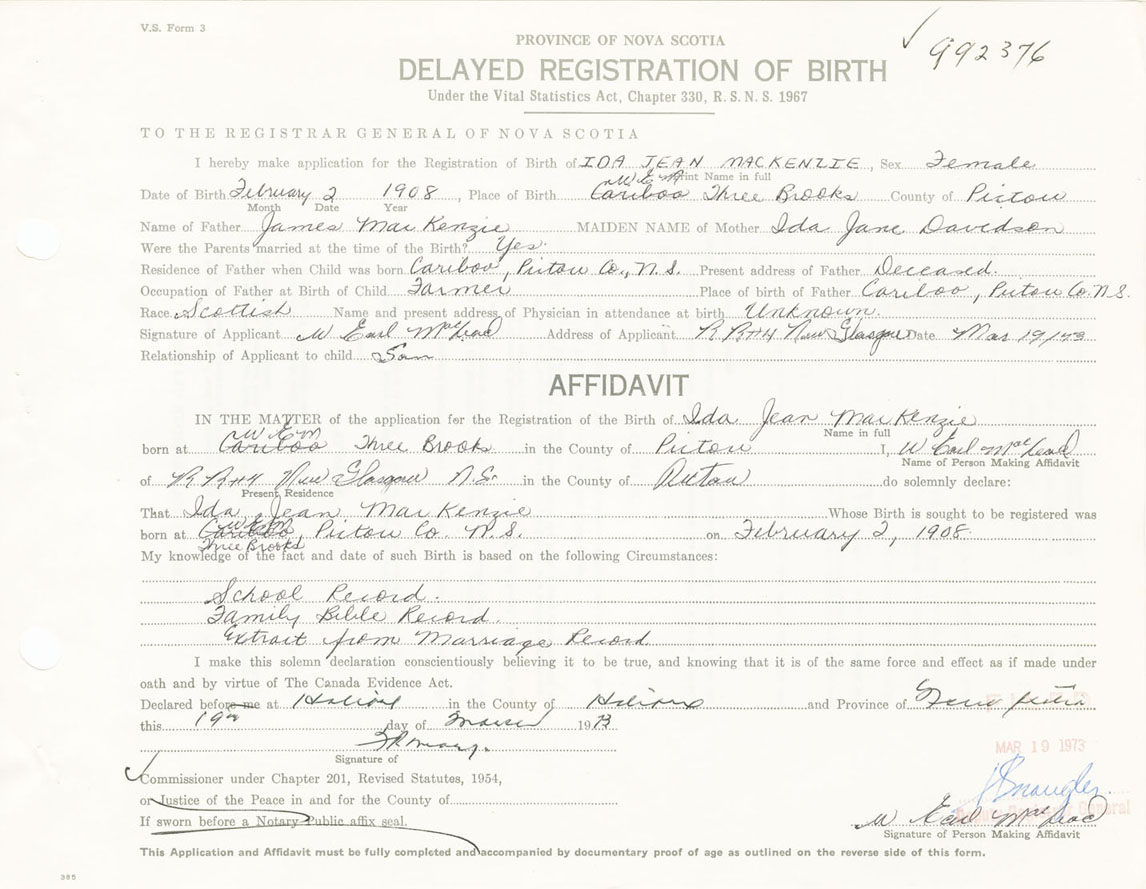 V.S. Form 3
992376
PROVINCE OF NOVA SCOTIA
DELAYED REGISTRATION OF BIRTH
Under the Vital Statistics Act, Chapter 330, R. S. N. S. 1967
TO THE REGISTRAR GENERAL OF NOVA SCOTIA
I hereby make application for the Registration of Birth of IDA JEAN MACKENZIE, Sex Female
W E M Print Name in full
Date of Birth February 2 1908, Place of Birth Cariboo Three Brooks County of Pictou
Month Date Year
Name of Father James MacKenzie MAIDEN NAME of Mother Ida Jane Davidson
Were the Parents married at the time of the Birth? Yes.
Residence of Father when Child was born Cariboo, Pictou Co., N.S. Present address of Father Deceased.
Occupation of Father at Birth of Child Farmer Place of birth of Father Cariboo, Pictou Co. N.S.
Race Scottish Name and present address of Physician in attendance at birth Unknown.
Signature of Applicant W Earl MacLeod Address of Applicant R R #4 New Glasgow Date Mar 19/73
Relationship of Applicant to child Son
AFFIDAVIT
IN THE MATTER of the application for the Registration of the Birth of Ida Jean MacKenzie
W E M Name in full
born at Cariboo Three Brooks in the County of Pictou I, W Earl MacLeod
Name of Person Making Affidavit
of R R #4 New Glasgow N.S. in the County of Pictou do solemnly declare:
Present Residence
That Ida Jean MacKenzie Whose Birth is sought to be registered was
W E M
born at Cariboo, Pictou Co. N.S. on February 2, 1908.
Three Brooks
My knowledge of the fact and date of such Birth is based on the following Circumstances:
School Record.
Family Bible Record.
Extract from Marriage Record
I make this solemn declaration conscientiously believing it to be true, and knowing that it is of the same force and effect as if made under
oath and by virtue of The Canada Evidence Act.
Declared before me at Halifax in the County of Halifax and Province of Nova Scotia
this 19th day of March 1973
MAR 19 1973
Signature of
Commissioner under Chapter 201, Revised Statutes, 1954,
or Justice of the Peace in and for the County of
General
If sworn before a Notary Public affix seal.
W Earl MacLeod
Signature of Person Making Affidavit
This Application and Affidavit must be fully completed and accompanied by documentary proof of age as outlined on the reverse side of this form.
385